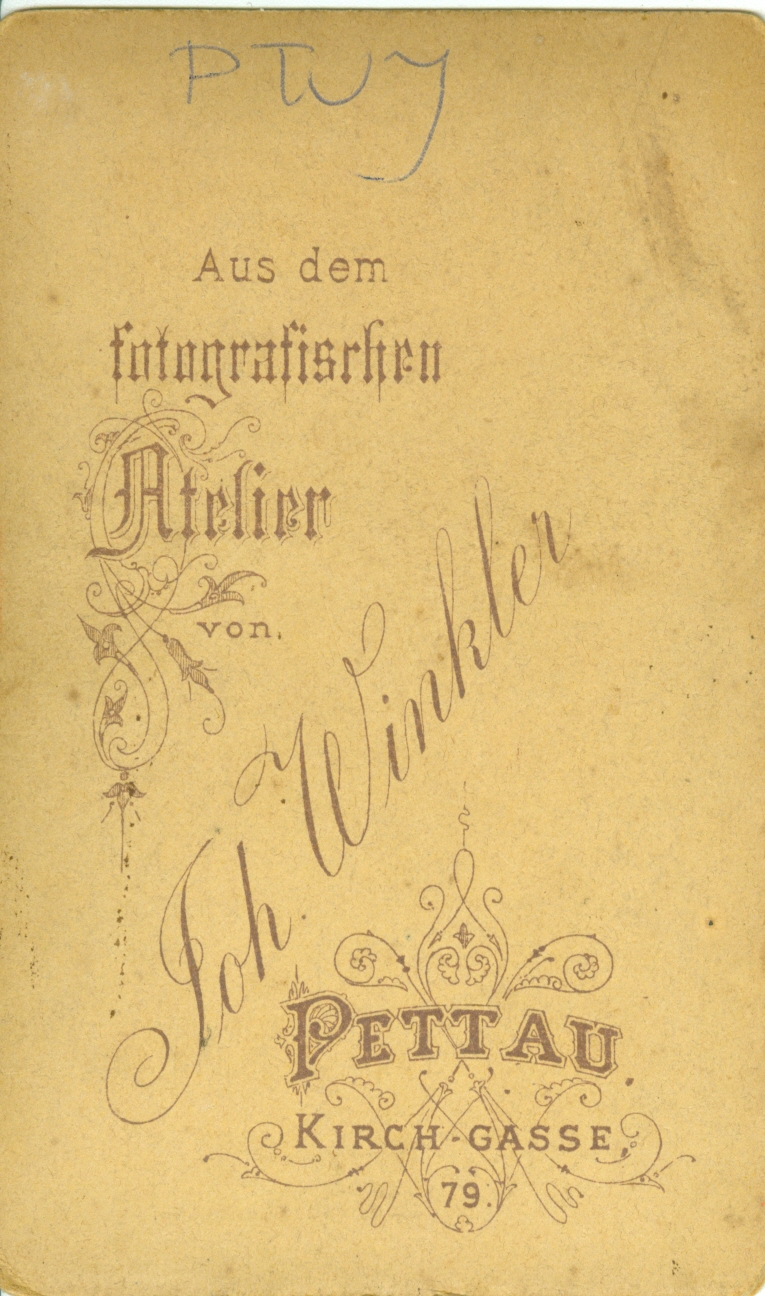 PTUJ
Aus dem
fotografischen
Atelier
von.
Joh. Winkler
PETTAU.
KIRCH-GASSE
79.